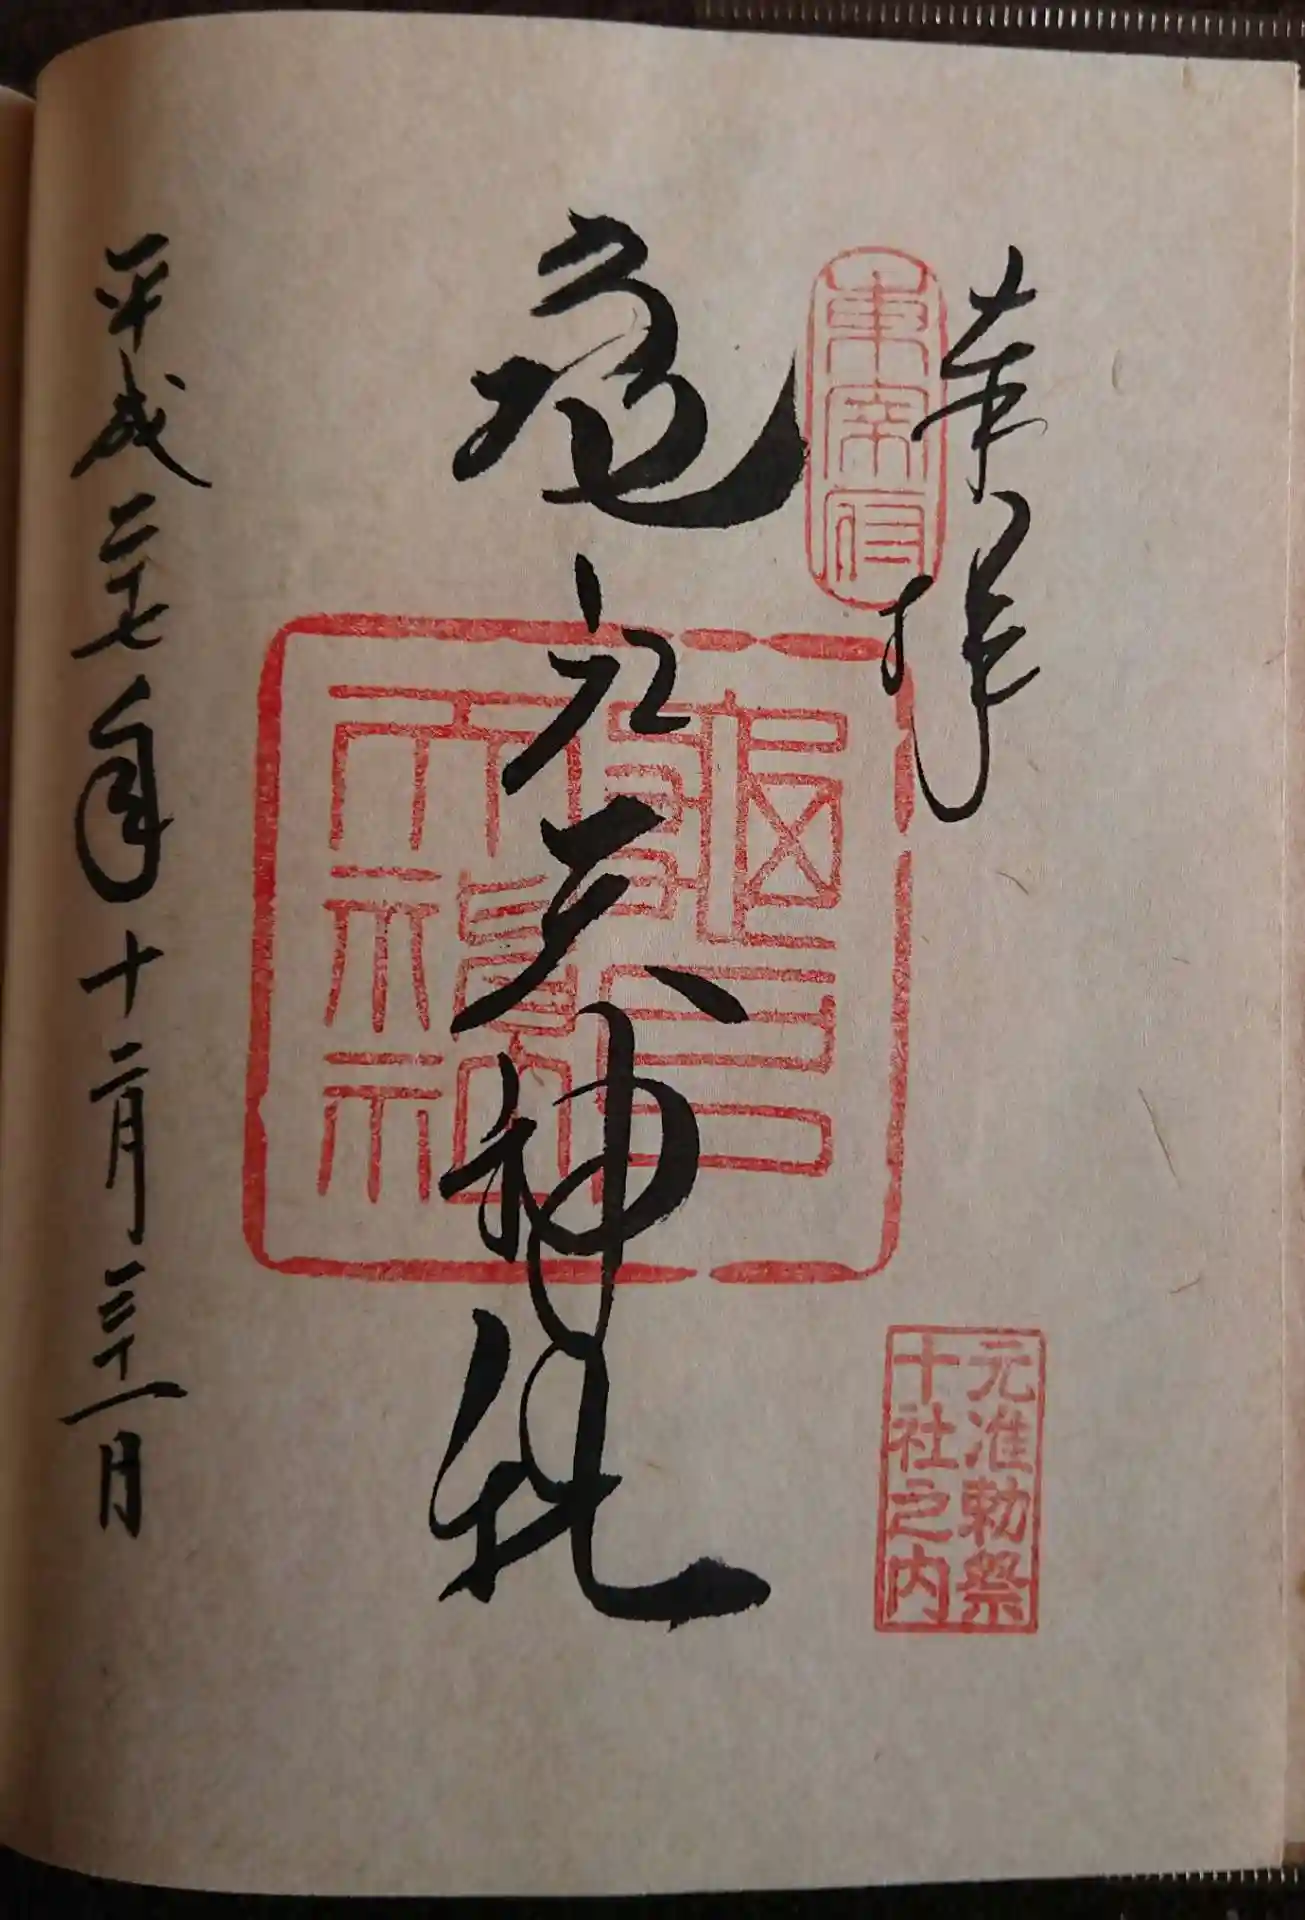 奉拝
東宰府
元准勅祭
十社之内
亀戸天神社
龜戸
天神社
平成二十七年十二月三十一日